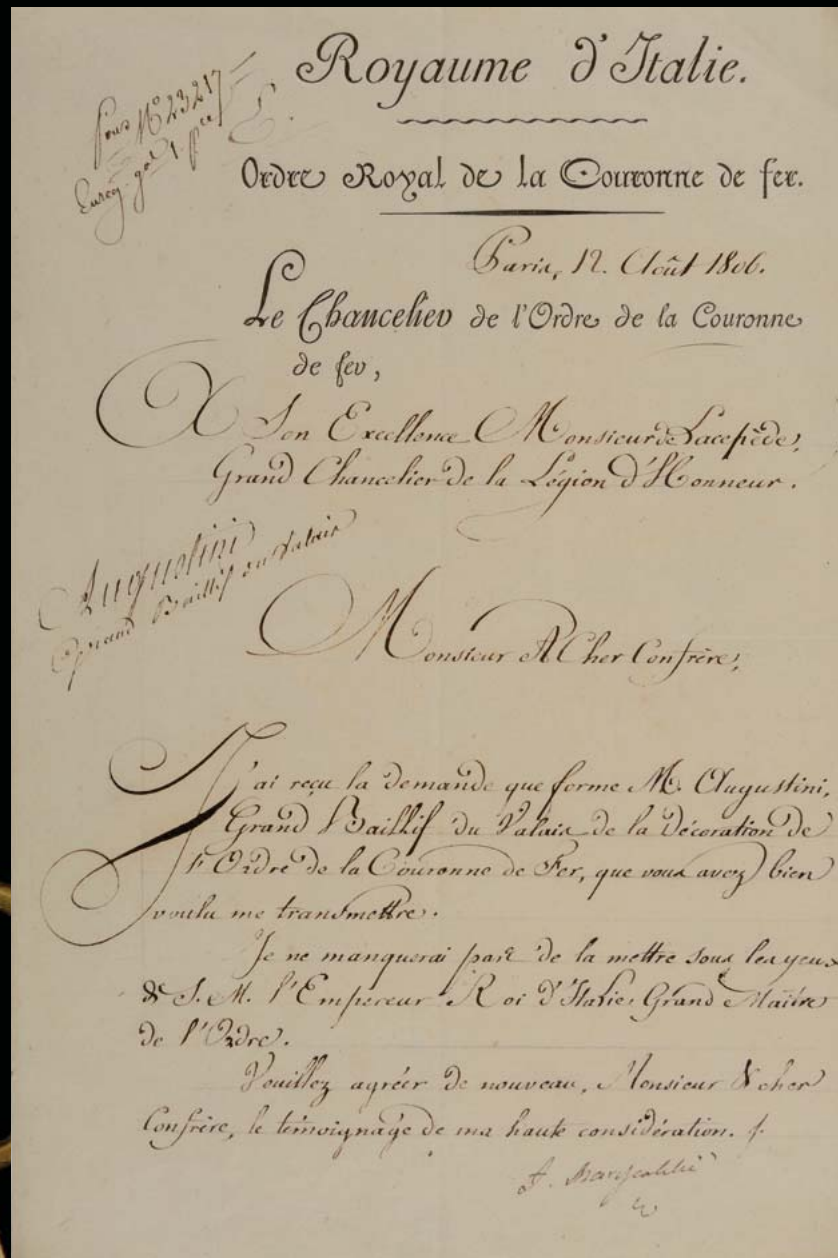 Royaume d'Italie.
pour N° 23217
Enreg. gal 1. pce
Ordre Royal de la Couronne de fer.
Paris, 12. Août 1806.
Le Chancelier de l'Ordre de la Couronne
de fer,
A Son Excellence Monsieur de Lacepède,
Grand Chancelier de la Légion d'Honneur.
Augustini
Grand Baillif du Valais
Monsieur & Cher Confrère,
J'ai reçu la demande que forme M. Augustini,
Grand Baillif du Valais de la Décoration de
l'Ordre de la Couronne de Fer, que vous avez bien
voulu me transmettre.
Je ne manquerai pas de la mettre sous les yeux
de S. M. l'Empereur & Roi d'Italie, Grand Maître
de l'Ordre.
Veuillez agréer de nouveau, Monsieur & cher
Confrère, le témoignage de ma haute considération.